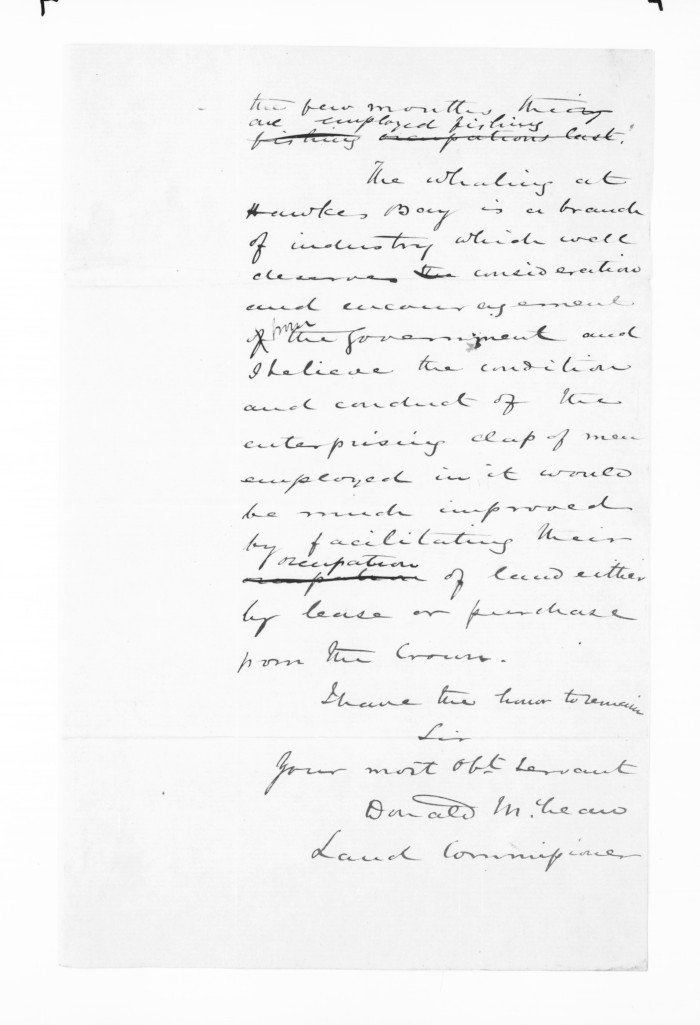 the few months they
are employed fishing
fishing occupations last.
The whaling at
Hawkes Bay is a branch
of industry which well
deserves the consideration
and encouragement
of from the Government and
I believe the condition
and conduct of the
enterprising class of men
employed in it would
be much improved
by facilitating their
occupation
occupation of land either
by lease or purchase
from the Crown.
I have the honor to remain
Sir
Your most Obt. Servant
Donald McLean
Land Commissioner